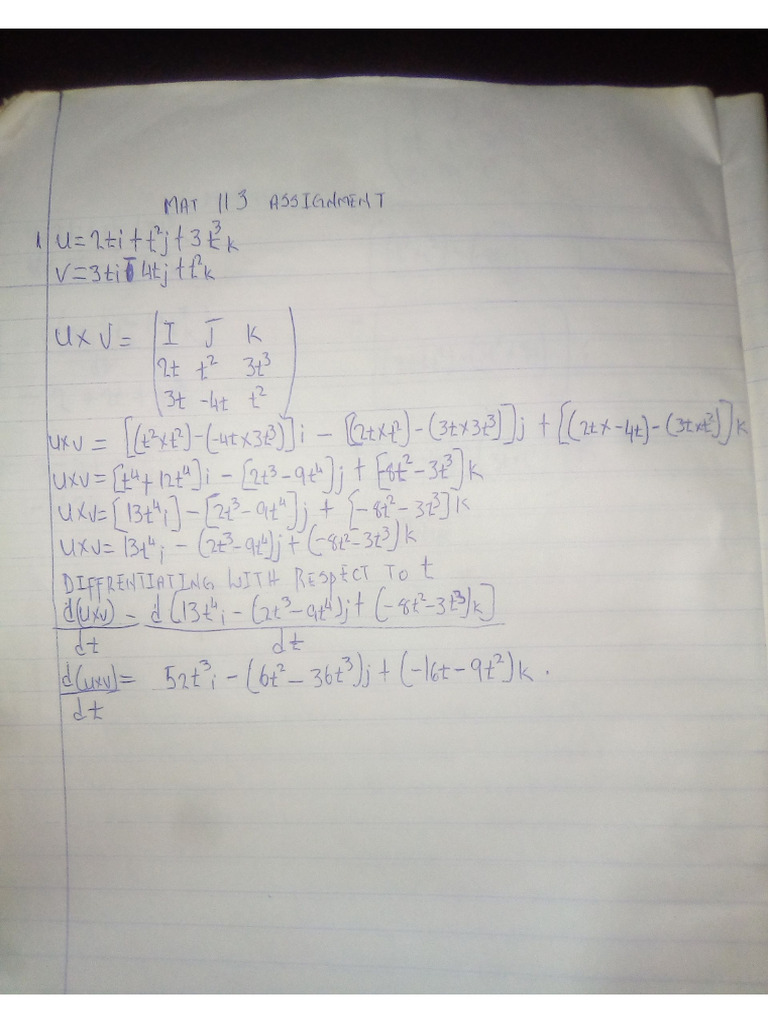 MAT 113 ASSIGNMENT
1 U=2ti+t²j+3t³k
V=3ti-4tj+t²k
U×V= |I J K
2t t² 3t³
3t -4t t²|
U×V = [(t²×t²)-(-4t×3t³)]i - [(2t×t²)-(3t×3t³)]j + [(2t×-4t)-(3t×t²)]k
U×V=[t⁴+12t⁴]i-[2t³-9t⁴]j+[-8t²-3t³]k
U×V=[13t⁴i]-[2t³-9t⁴]j+[-8t²-3t³]k
U×V=13t⁴i-(2t³-9t⁴)j+(-8t²-3t³)k
DIFFRENTIATING WITH RESPECT TO t
d(U×V) = d(13t⁴i-(2t³-9t⁴)j+(-8t²-3t³)k)
dt dt
d(U×V)= 52t³i-(6t²-36t³)j+(-16t-9t²)k.
dt